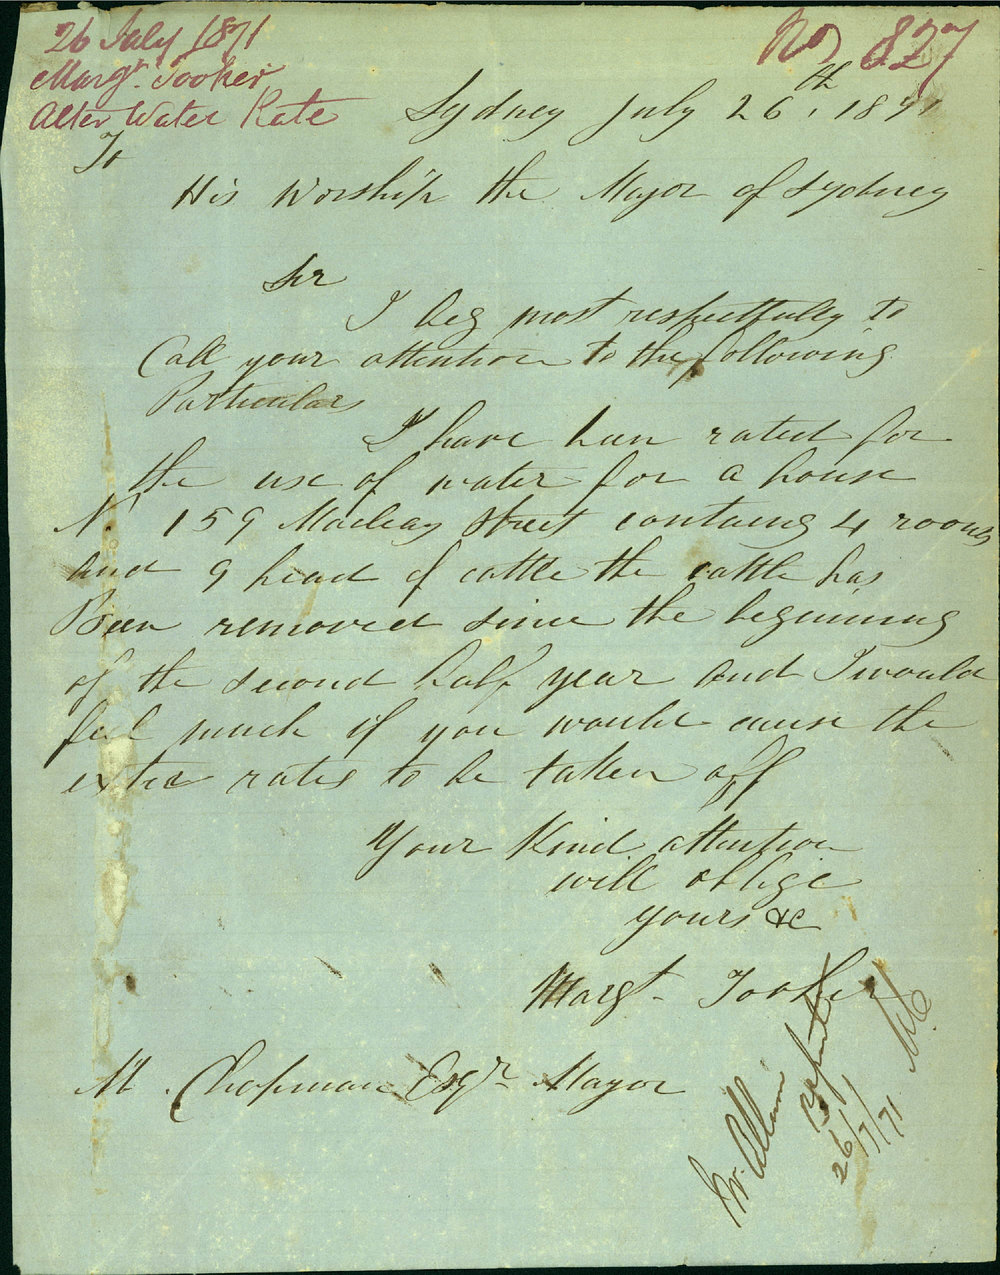 26 July 1871
Margt. Tooker
Alter Water Rate
No 827
Sydney July 26th. 1871
To
His Worship the Mayor of Sydney
Sir
I beg most respectfully to
Call your attention to the following
Particulars
I have been rated for
the use of water for a house
No 159 Macleay Street containg 4 rooms
and 9 head of cattle the cattle has
Been removed since the beginning
of the second half year and I would
feel much if you would cause the
extra rates to be taken off
Your Kind attention
will oblige
yours &c
Margt. Tooker
M. Chapman Esqr Mayor
Mr. Allum
26/7/71